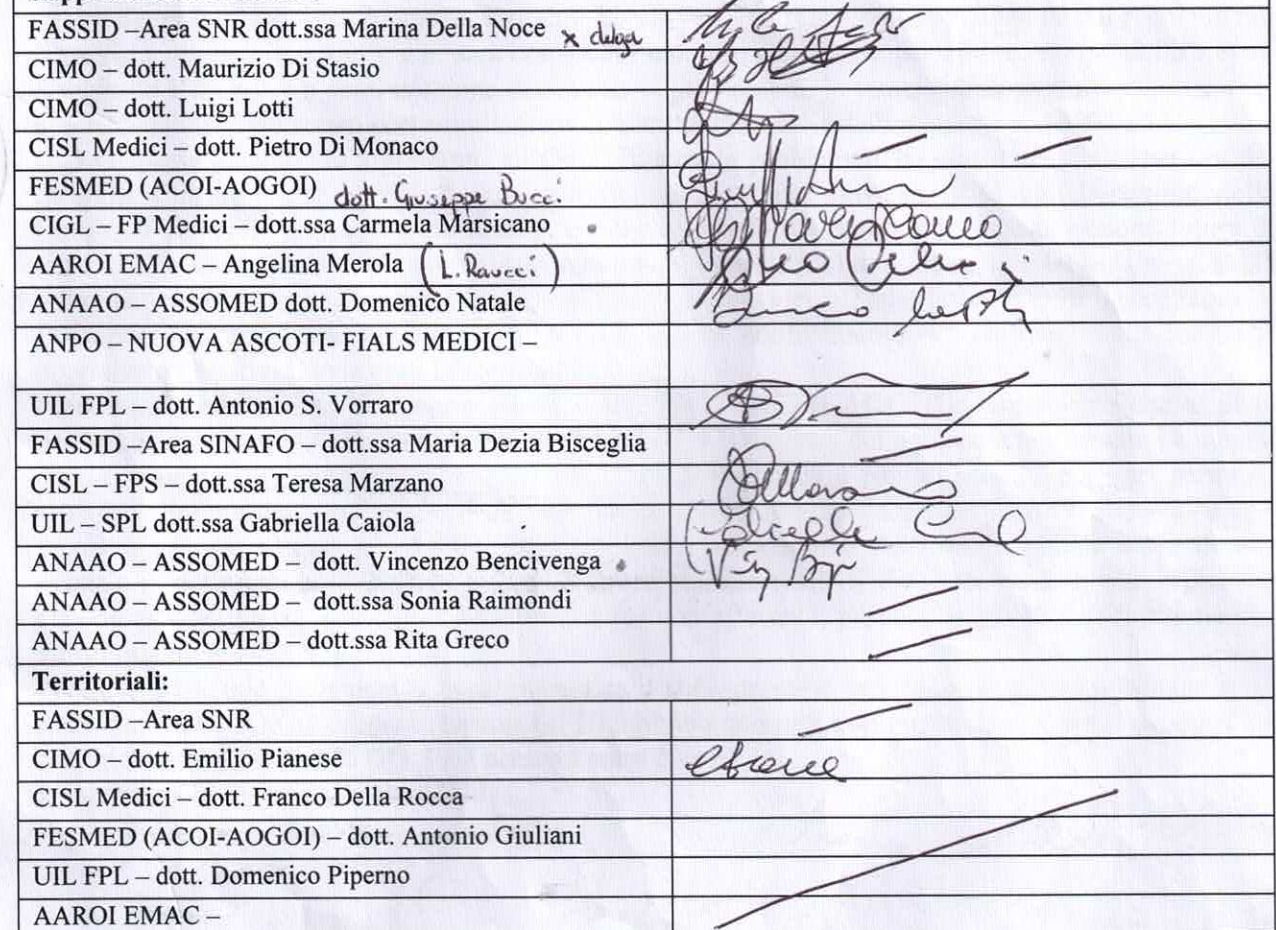 FASSID –Area SNR dott.ssa Marina Della Noce x delega
CIMO – dott. Maurizio Di Stasio
CIMO – dott. Luigi Lotti
CISL Medici – dott. Pietro Di Monaco
FESMED (ACOI-AOGOI) dott. Giuseppe Bucci
CIGL – FP Medici – dott.ssa Carmela Marsicano
AAROI EMAC – Angelina Merola (L. Raucci)
ANAAO – ASSOMED dott. Domenico Natale
ANPO – NUOVA ASCOTI- FIALS MEDICI –
UIL FPL – dott. Antonio S. Vorraro
FASSID –Area SINAFO – dott.ssa Maria Dezia Bisceglia
CISL – FPS – dott.ssa Teresa Marzano
UIL – SPL dott.ssa Gabriella Caiola
ANAAO – ASSOMED – dott. Vincenzo Bencivenga
ANAAO – ASSOMED – dott.ssa Sonia Raimondi
ANAAO – ASSOMED – dott.ssa Rita Greco
Territoriali:
FASSID –Area SNR
CIMO – dott. Emilio Pianese
CISL Medici – dott. Franco Della Rocca
FESMED (ACOI-AOGOI) – dott. Antonio Giuliani
UIL FPL – dott. Domenico Piperno
AAROI EMAC –